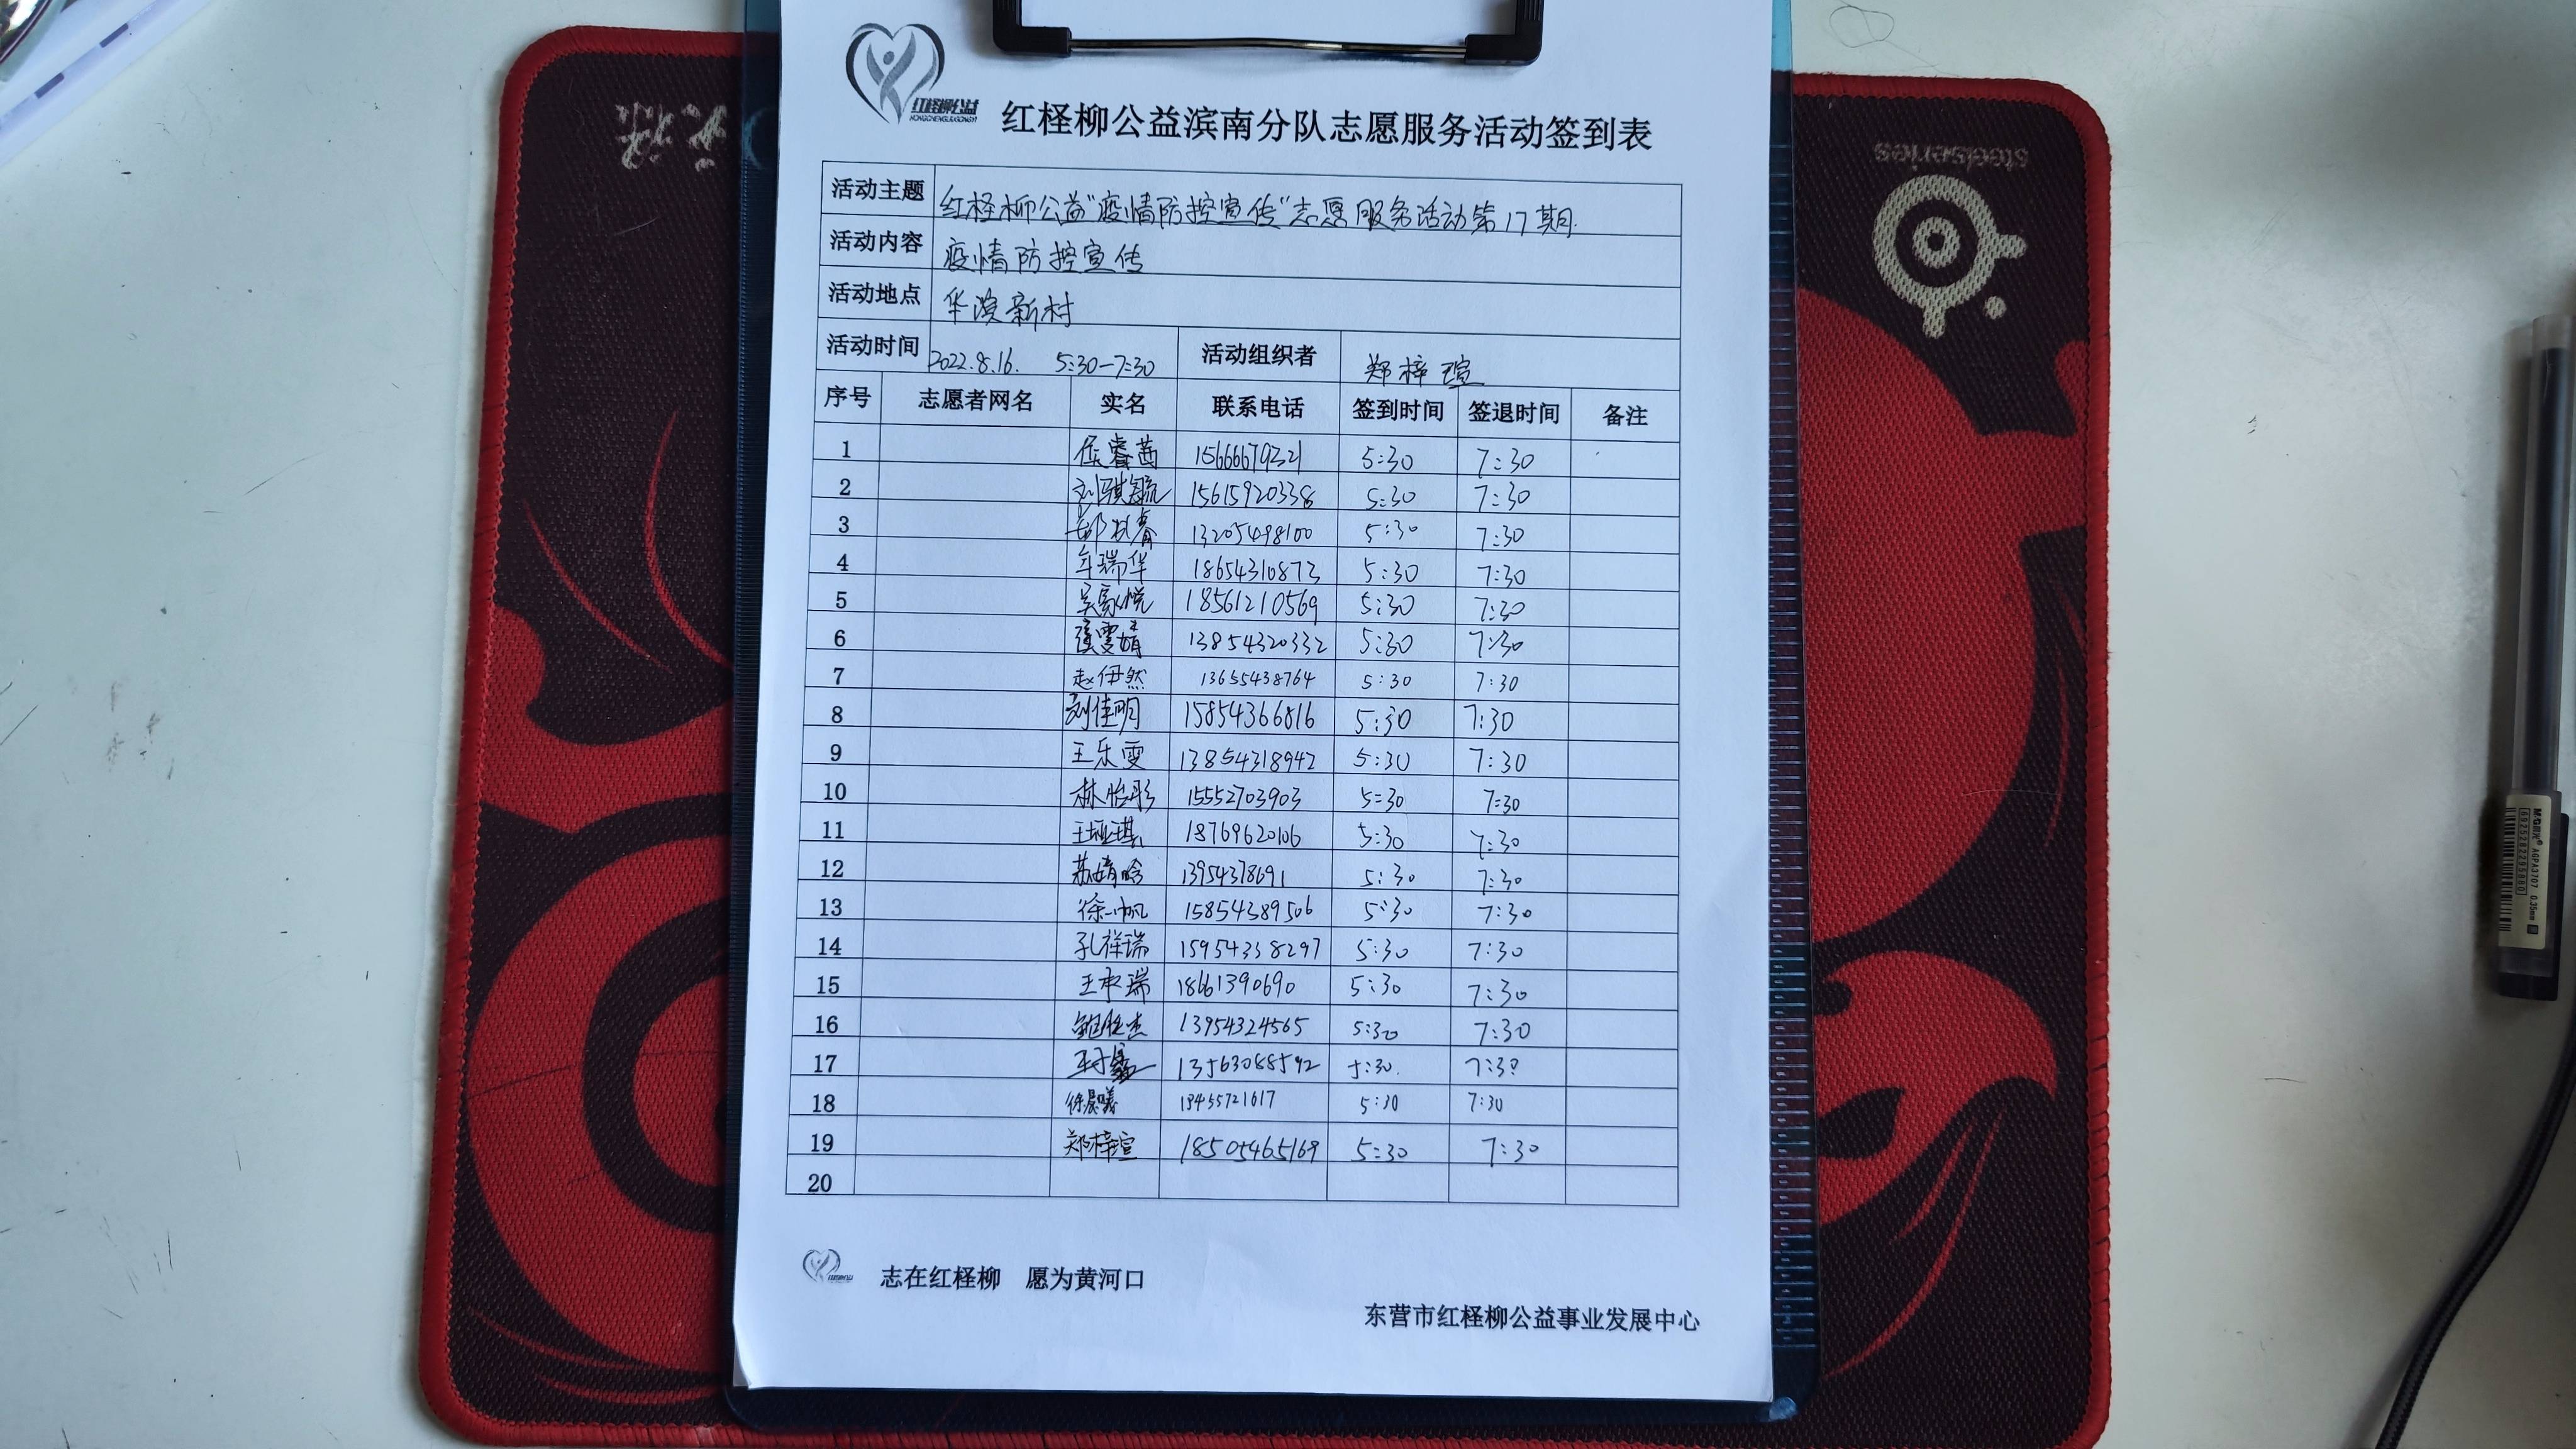 红柽柳公益
HONGCHENGLIUGONGYI
红柽柳公益滨南分队志愿服务活动签到表
活动主题 红柽柳公益"疫情防控宣传"志愿服务活动第17期.
活动内容 疫情防控宣传
活动地点 华滨新村
活动时间 2022.8.16. 5:30-7:30 活动组织者 郑梓瑄
序号 志愿者网名 实名 联系电话 签到时间 签退时间 备注
1 侯睿茜 15666679321 5:30 7:30
2 15615920338 5:30 7:30
3 13205498100 5:30 7:30
4 牟瑞华 18654310873 5:30 7:30
5 吴家悦 18561210569 5:30 7:30
6 张雯婧 13854320332 5:30 7:30
7 赵伊然 13655438764 5:30 7:30
8 刘佳明 15854366816 5:30 7:30
9 王乐雯 13854318942 5:30 7:30
10 林怡彤 15552703903 5:30 7:30
11 王垭琪 18769620106 5:30 7:30
12 苏婧晗 13954378691 5:30 7:30
13 徐一帆 15854389506 5:30 7:30
14 孔祥瑞 15954338297 5:30 7:30
15 王承瑞 18661390690 5:30 7:30
16 13954324565 5:30 7:30
17 13563088592 5:30. 7:30
18 徐晨曦 5:30 7:30
19 郑梓瑄 18505465169 5:30 7:30
20
志在红柽柳 愿为黄河口
东营市红柽柳公益事业发展中心
steelseries
M&G
AGPA3707 0.35mm